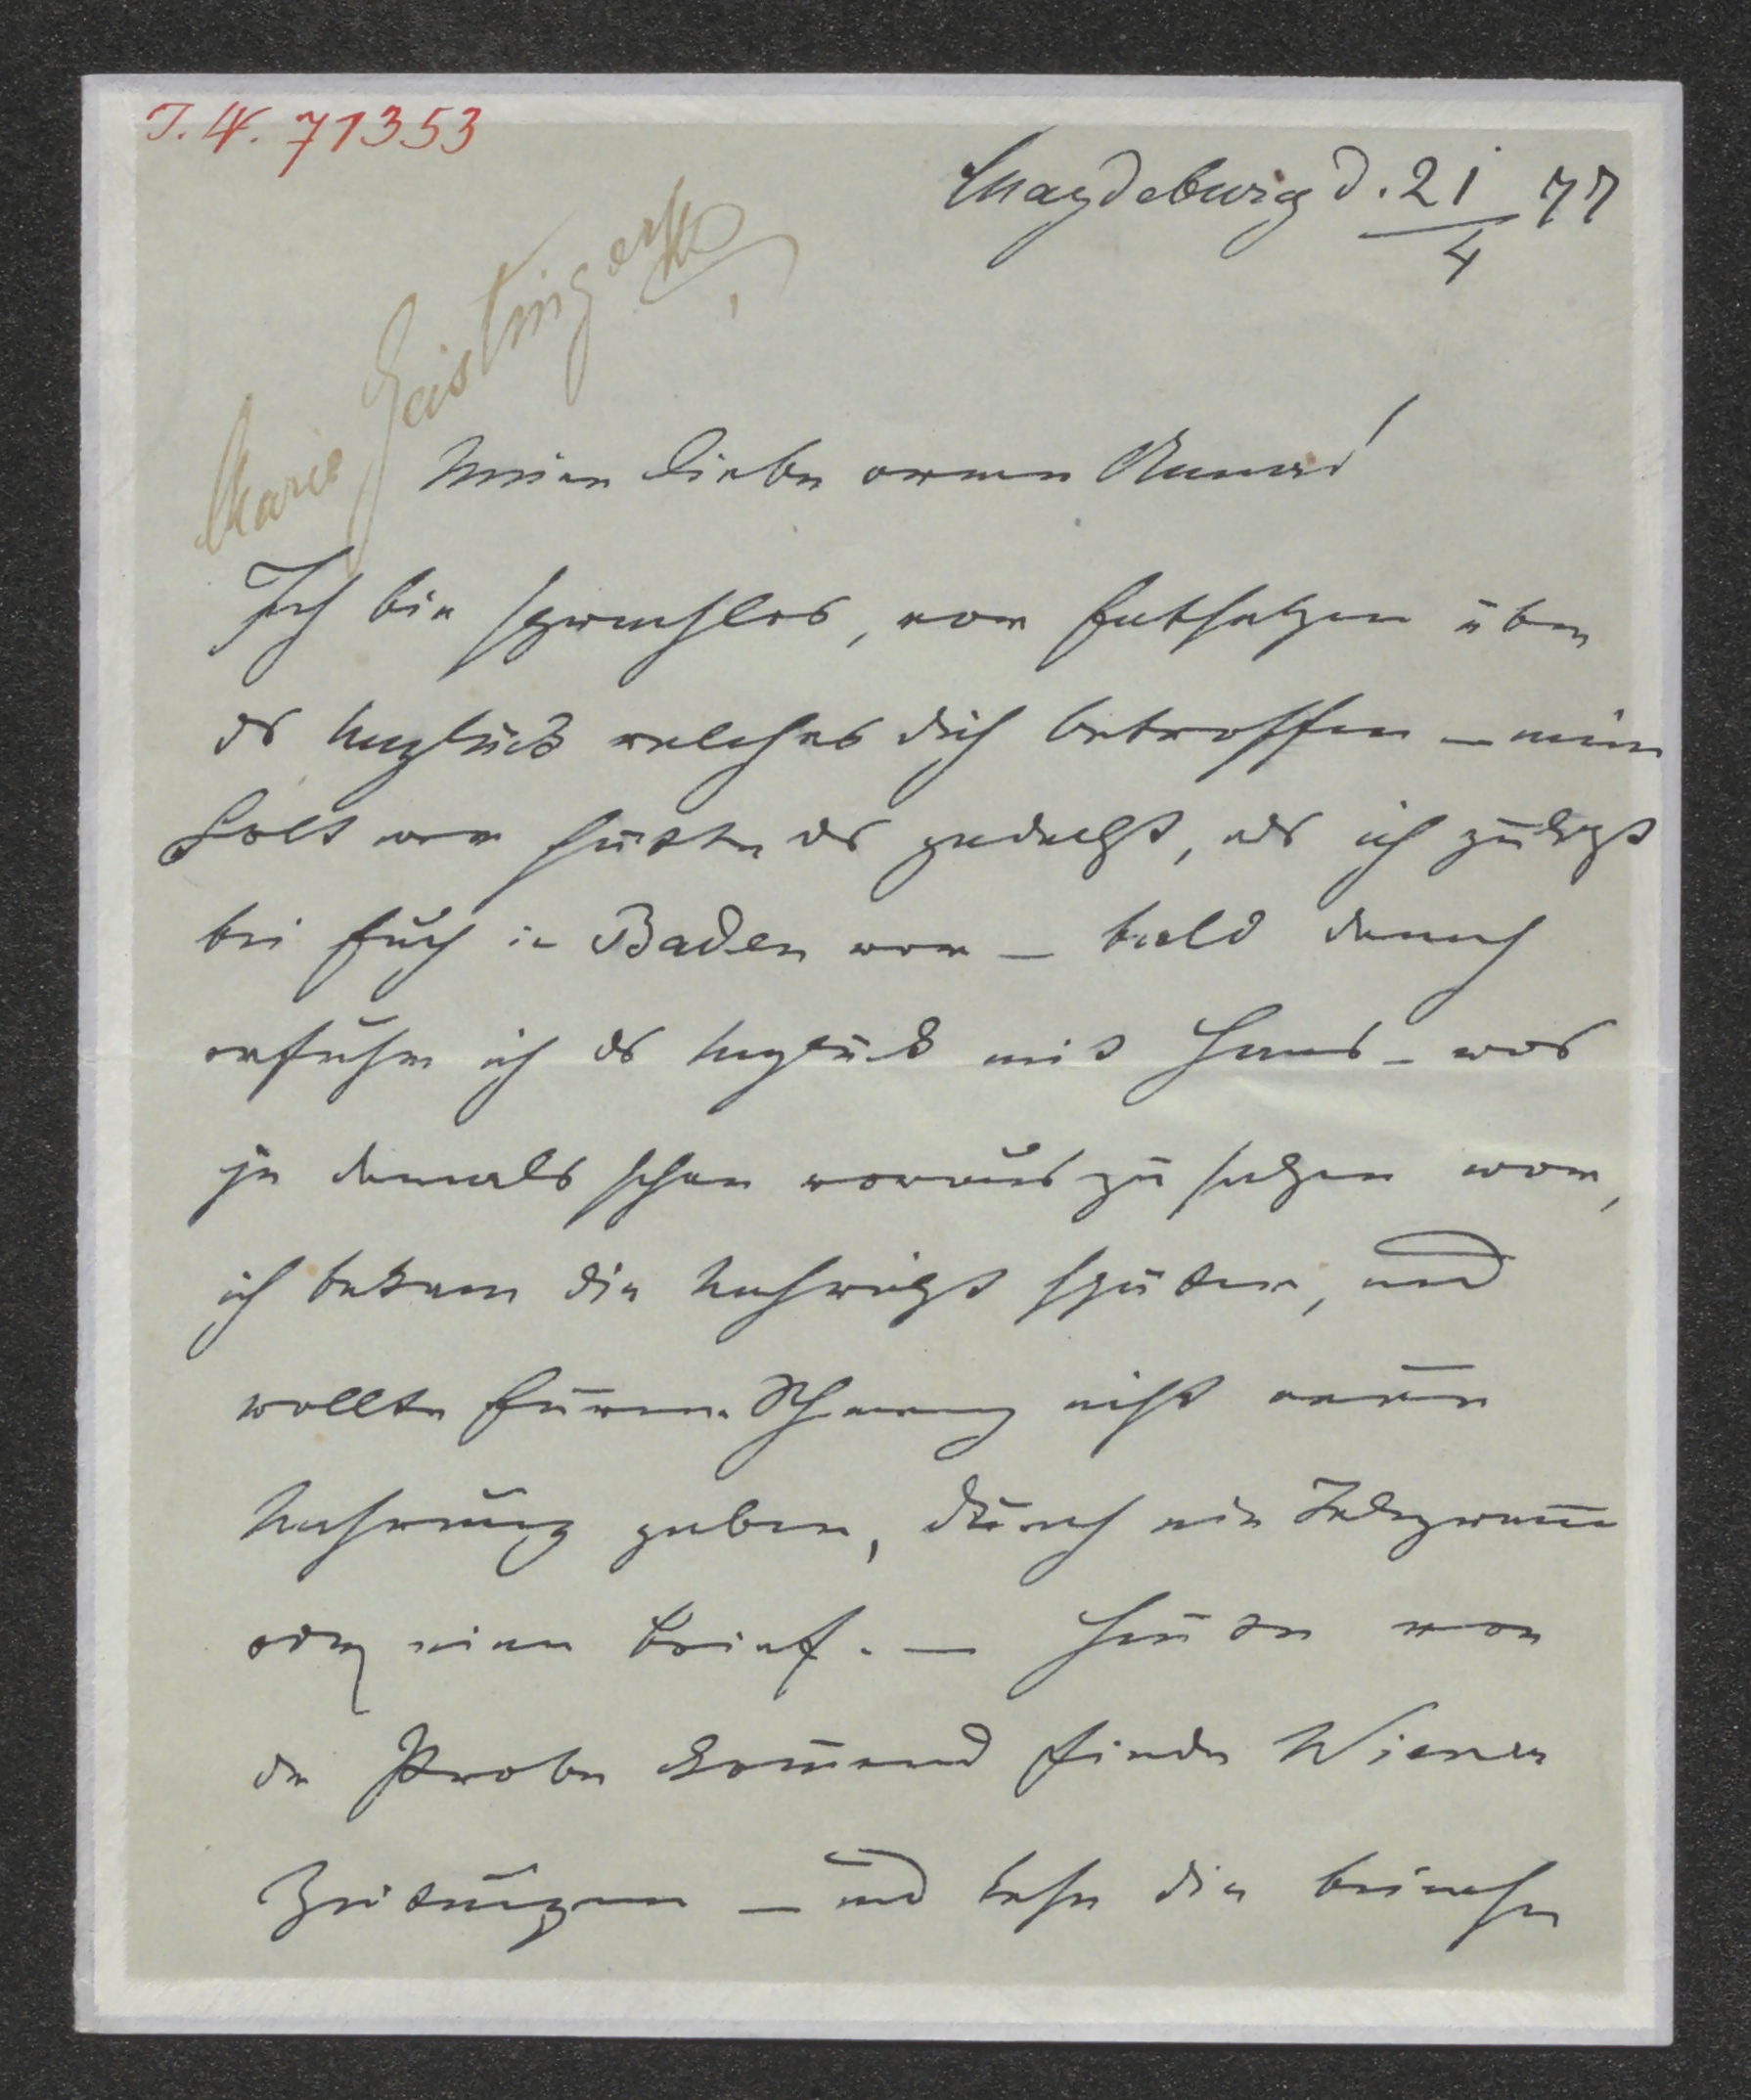 I. N. 71353
Magdeburg d. 21/4 77
Marie Geistinger
Meine liebe arme
Ich bin sprachlos, vor Entsetzen über
das Unglück welches dich betroffen – mein
Gott wer hätte das gedacht, als ich zuletzt
bei Euch in Baden war – bald danach
erfuhr ich das Unglück mit Hans – was
ja damals schon vorauszusehen war,
ich bekam die Nachricht später, und
wollte Eurem Schmerz nicht neue
Nahrung geben, durch ein Telegramm
oder einen Brief. – Heute von
der Probe kommend finde Wiener
Zeitungen – und lese die beinahe